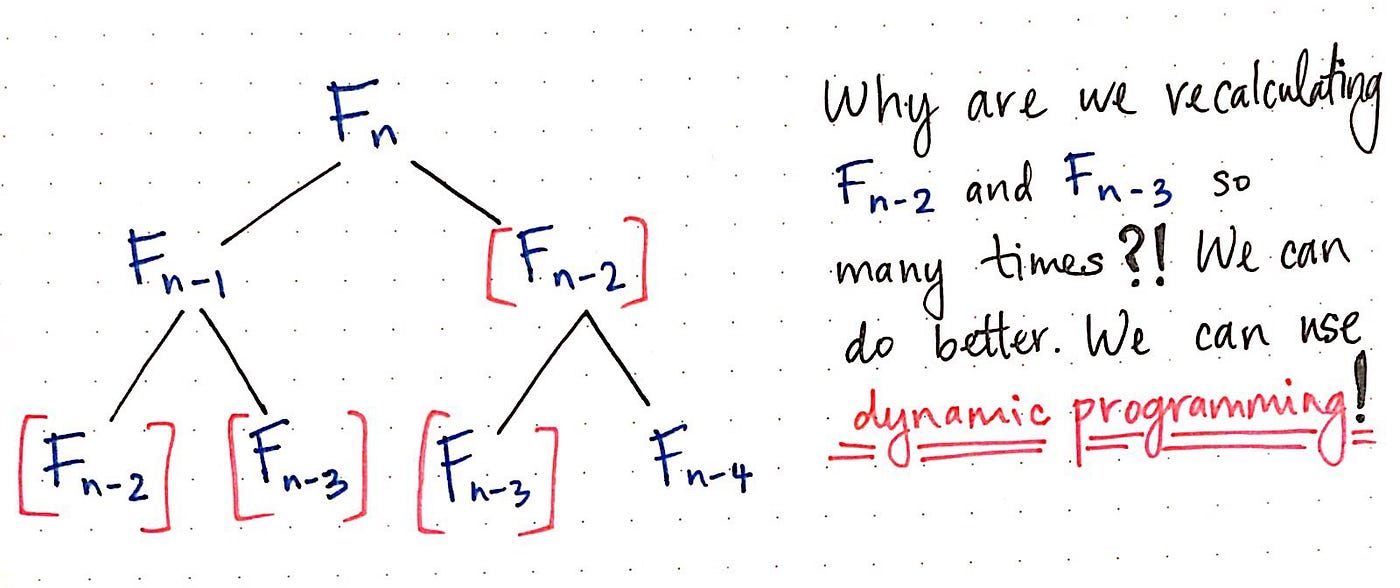 Fn
Fn-1 [Fn-2]
[Fn-2] [Fn-3] [Fn-3] Fn-4
Why are we recalculating
Fn-2 and Fn-3 so
many times?! We can
do better. We can use
dynamic programming!